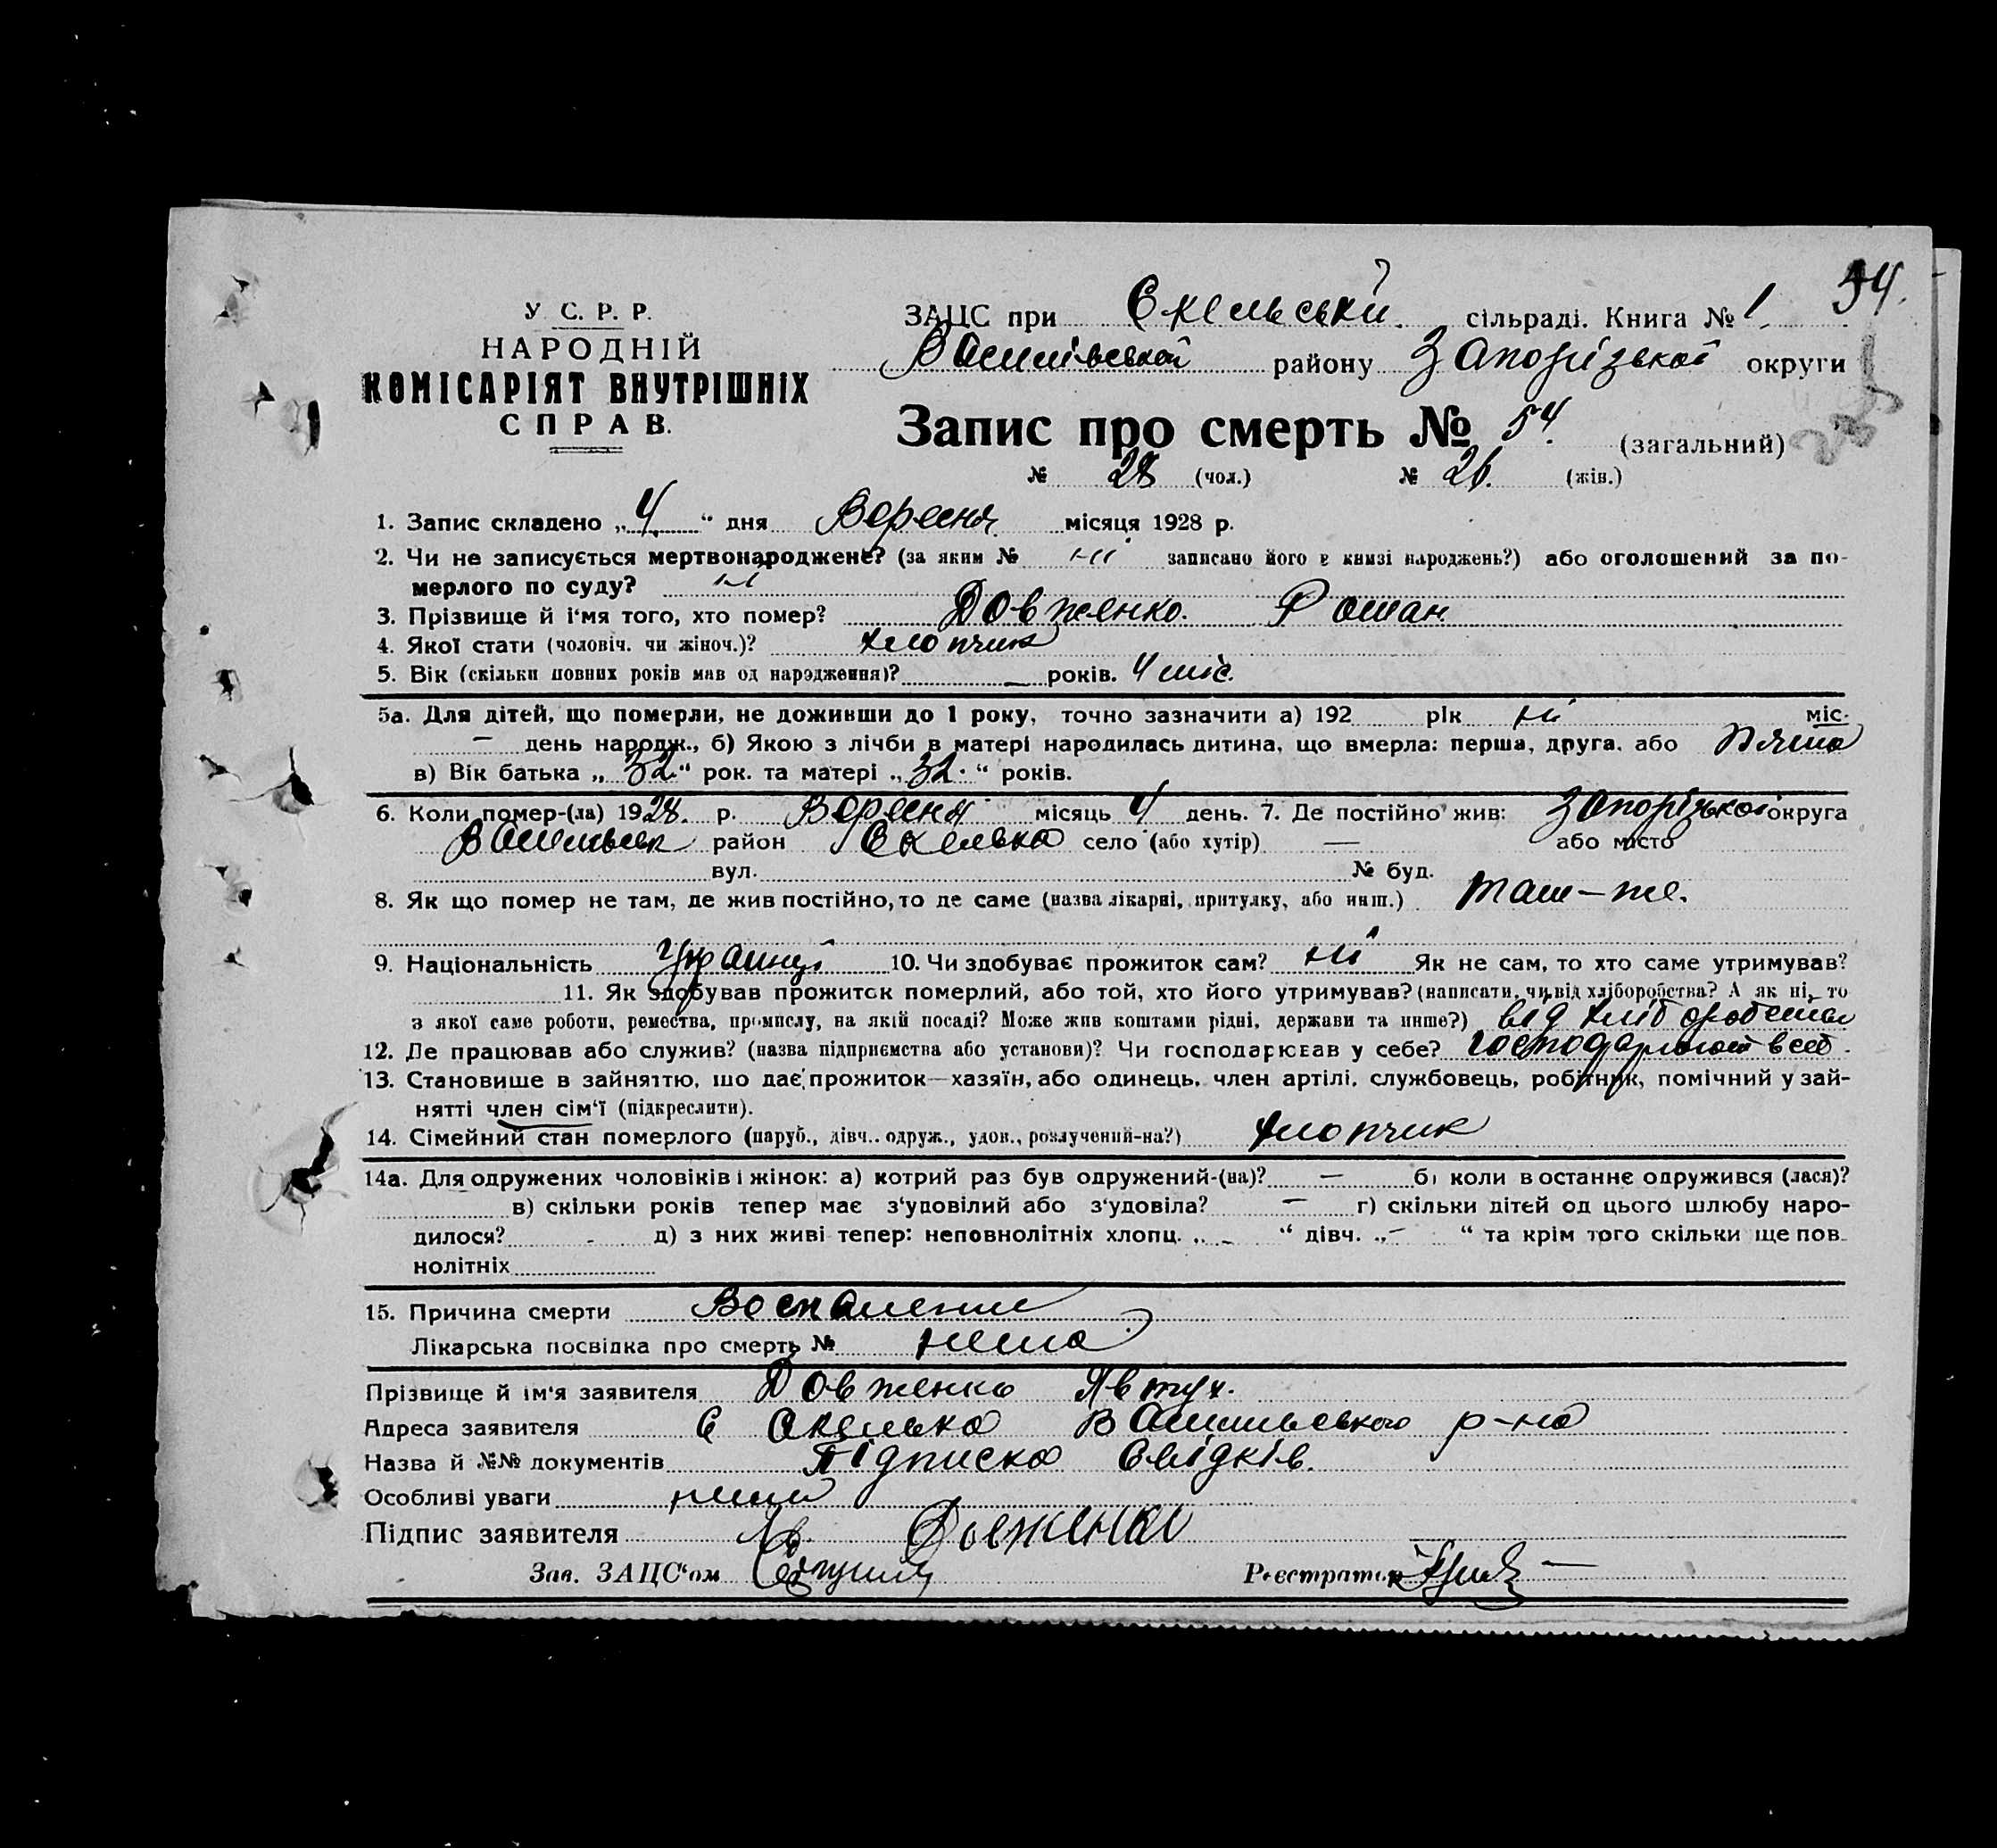 54.
У С. Р. Р.
НАРОДНІЙ
КОМІСАРІЯТ ВНУТРІШНІХ
СПРАВ.
ЗАЦС при Скельській сільраді. Книга № 1.
Василівської району Запорізької округи
Запис про смерть № 54. (загальний)
№ 28 (чол.) № 26. (жін.)
1. Запис складено „4“ дня Вересня місяця 1928 р.
2. Чи не записується мертвонароджене? (за яким № ні записано його в книзі народжень?) або оголошений за по-
мерлого по суду? ні
3. Прізвище й і‘мя того, хто помер? Довженко. Роман.
4. Якої стати (чоловіч. чи жіноч.)? хлопчик
5. Вік (скільки повних років мав од народження)? — років. 4 міс.
5а. Для дітей, що померли, не доживши до 1 року, точно зазначити а) 192 рік ні міс.
— день народж., б) Якою з лічби в матері народилась дитина, що вмерла: перша, друга, або Пята
в) Вік батька „32“ рок. та матері „32.“ років.
6. Коли помер-(ла) 1928. р. Вересня місяць 4 день. 7. Де постійно жив: Запорізької округа
Васильевск район Скелька село (або хутір) — або місто
вул. № буд.
8. Як що помер не там, де жив постійно, то де саме (назва лікарні, притулку, або инш.) там-же.
9. Національність Українці 10. Чи здобуває прожиток сам? ні Як не сам, то хто саме утримував?
11. Як здобував прожиток померлий, або той, хто його утримував? (написати, чи від хліборобства? А як ні, то
з якої саме роботи, ремества, промислу, на якій посаді? Може жив коштами рідні, держави та инше?) від хліборобства
12. Де працював або служив? (назва підприємства або установи)? Чи господарював у себе?
13. Становише в зайняттю, шо дає прожиток—хазяїн, або одинець, член артілі, службовець, робітник, помічний у зай-
нятті член сім‘ї (підкреслити).
14. Сімейний стан померлого (паруб., дівч.. одруж., удов., розлучений-на?) хлопчик
14а. Для одружених чоловіків і жінок: а) котрий раз був одружений-(на)? — б) коли в останнє одружився (лася)?
в) скільки років тепер має з‘удовілий або з‘удовіла? — г) скільки дітей од цього шлюбу наро-
дилося? - д) з них живі тепер: неповнолітніх хлопц. „ - “ дівч. „ - “ та крім того скільки ще пов-
нолітніх
15. Причина смерти Воспаление
Лікарська посвідка про смерть № нема
Прізвище й ім‘я заявителя Довженко Явтух.
Адреса заявителя С Скелька Васильевського р-на
Назва й №№ документів Підписка Свідків.
Особливі уваги нема
Підпис заявителя Яв. Довженко
Зав. ЗАЦС‘ом Реєстратор